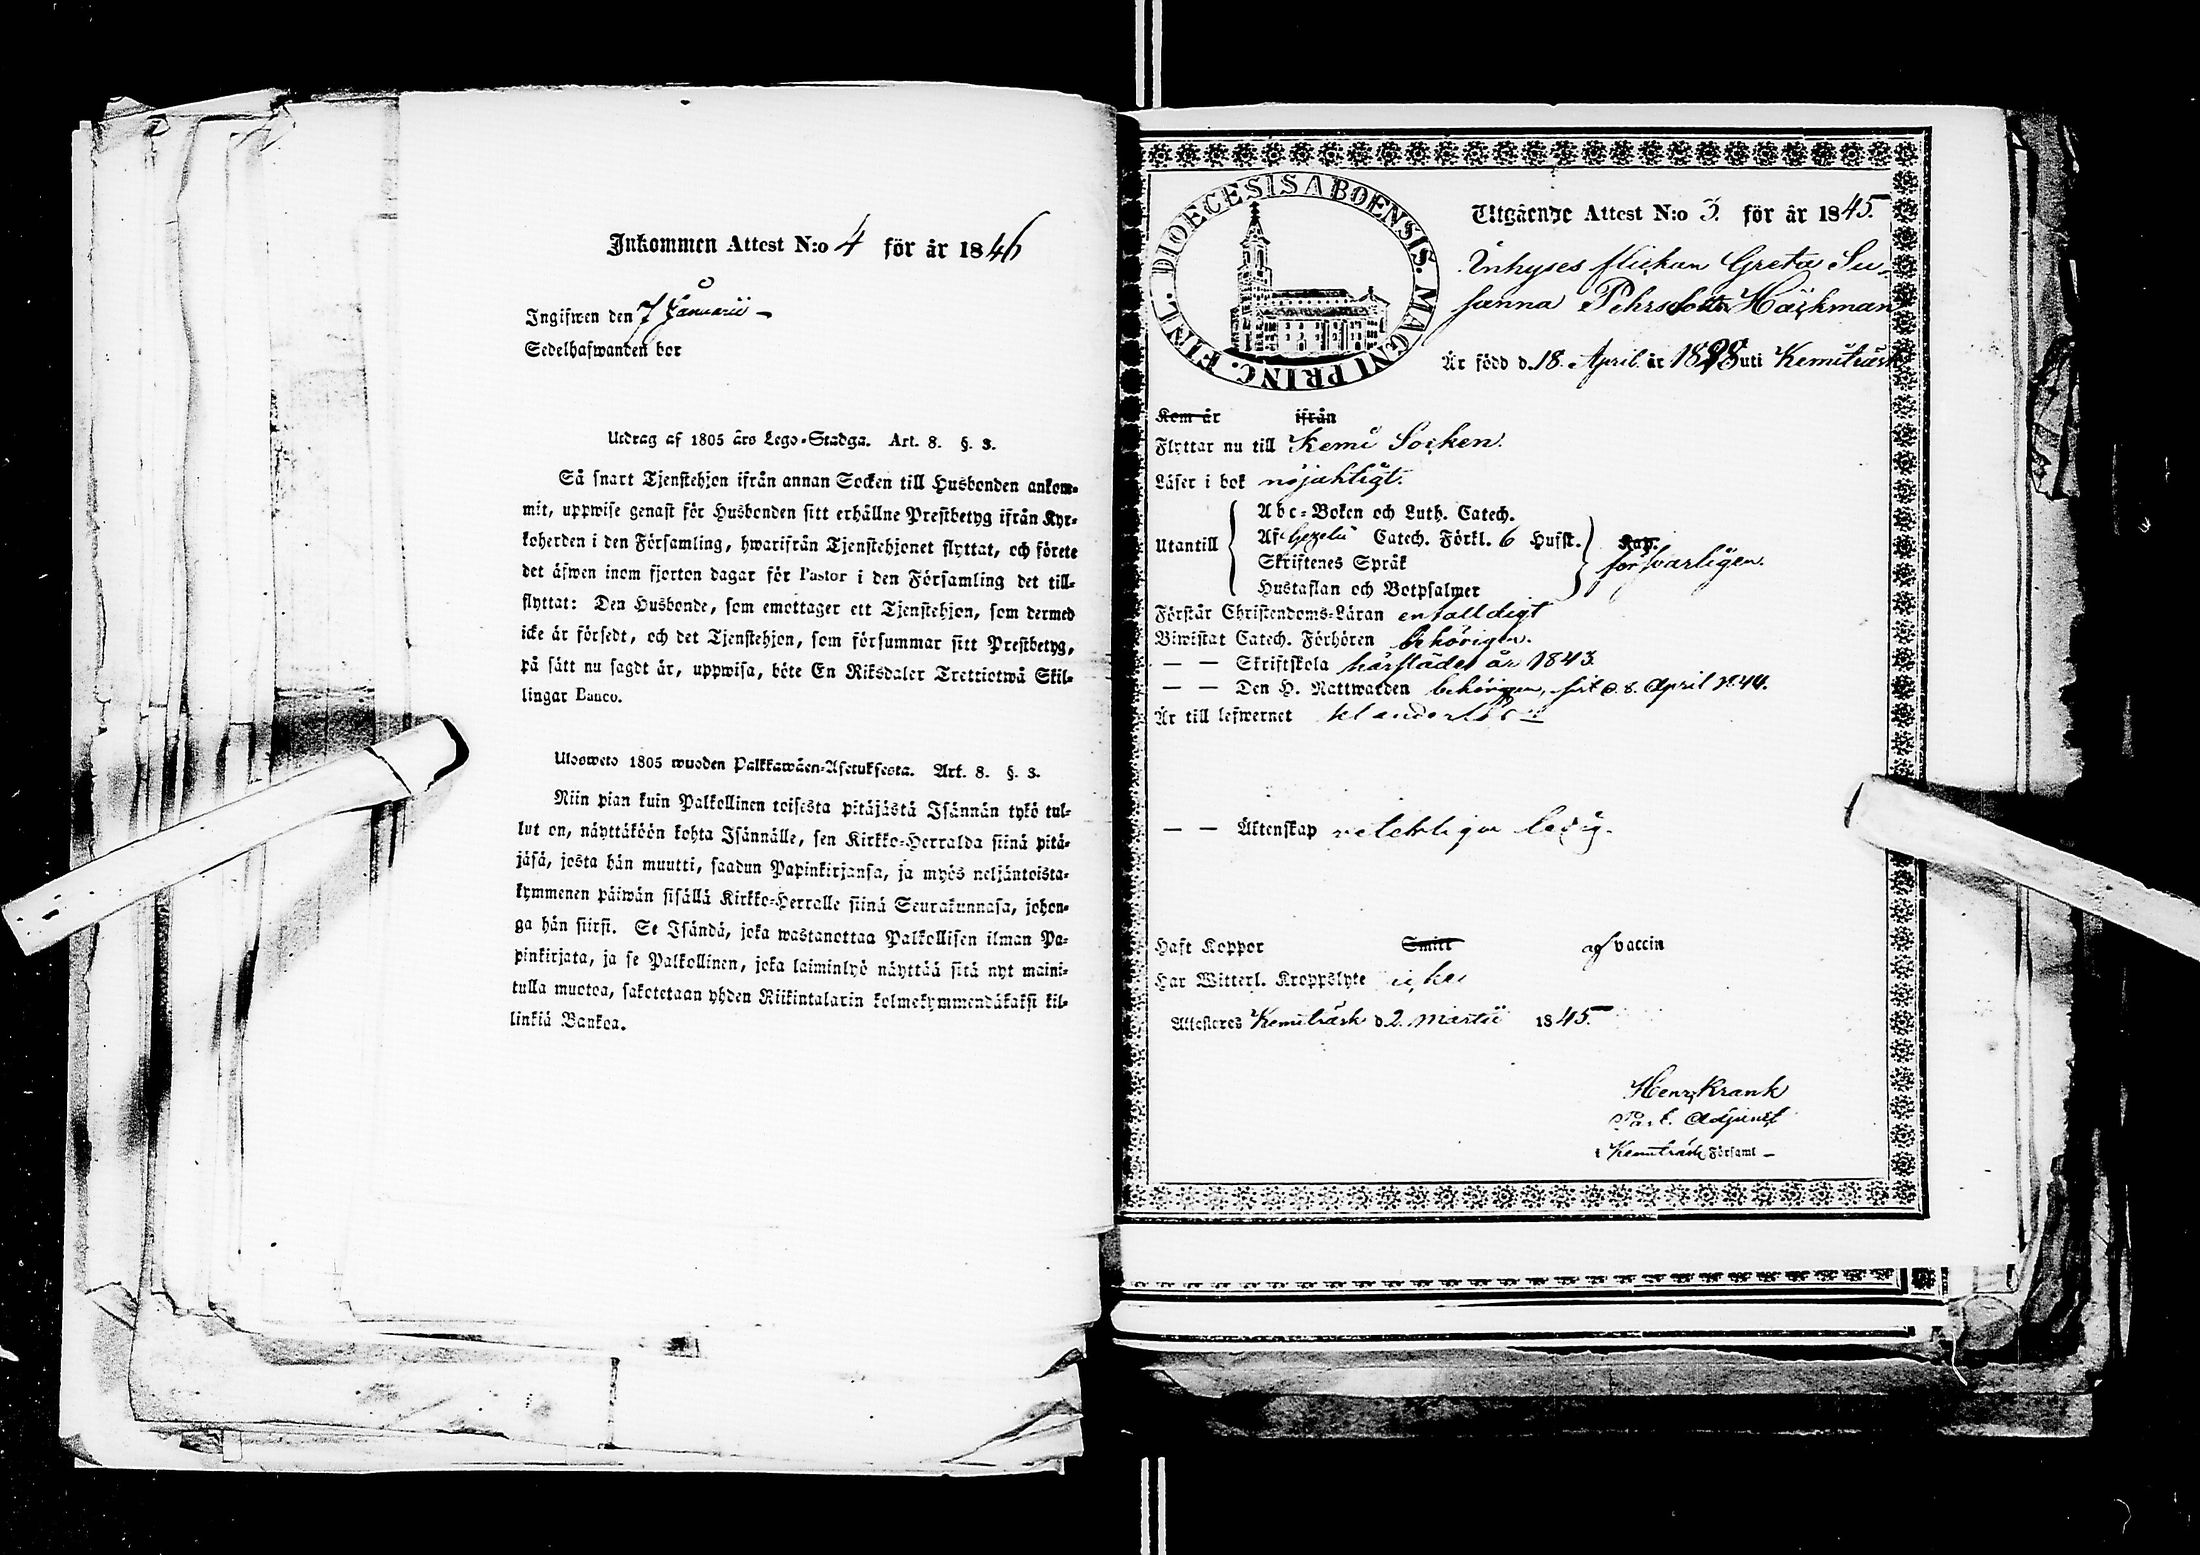 Inkommen Attest N:o 4 för år 1846
Ingifwen den 7 Januarii
Sedelhafwanden bor
Utdrag af 1805 års Lego-Stadga. Art. 8. §. 3.
Så snart Tjenstehjon ifrån annan Socken till Husbonden ankom-
mit, uppwise genast för Husbonden sitt erhållne Prestbetyg ifrån Kyr-
koherden i den Församling, hwarifrån Tjenstehjonet flyttat, och förete
det äfwen inom fjorton dagar för Pastor i den Församling det till-
flyttat: Den Husbonde, som emottager ett Tjenstehjon, som dermed
icke är försedt, och det Tjenstehjon, som försummar sitt Prestbetyg,
på sätt nu sagdt är, uppwisa, böte En Riksdaler Trettiotwå Skil-
lingar Banco.
Ulosweto 1805 wuoden Palkkawäen-Asetuksesta. Art. 8. §. 3.
Niin pian kuin Palkollinen toisesta pitäjästä Isännän tykö tul-
lut on, näyttäköön kohta Isännälle, sen Kirkko-Herralda siinä pitä-
jäsä, josta hän muutti, saadun Papinkirjansa, ja myös neljäntoista-
kymmenen päiwän sisällä Kirkko-Herralle siinä Seurakunnasa, johon-
ga hän siirsi. Se Isändä, joka wastanottaa Palkollisen ilman Pa-
pinkirjata, ja se Palkollinen, joka laiminlyö näyttää sitä nyt maini-
tulla muotoa, sakotetaan yhden Riikintalarin kolmekymmendäkaksi kil-
linkiä Bankoa.
DIOECESIS ABOENSIS. MAGNI PRINC. FINL.
Utgående Attest N:o 3. för år 1845.
Inhyses flickan Greta Su-
sanna Pehrsdotter Häckman
Är född d. 18. April år 1828 uti Kemiträsk
Kom år ifrån
Flyttar nu till Kemi Socken.
Läser i bok nöjaktigt.
Utantill
Abc-Boken och Luth. Catech.
Af Gezelii Catech. Förkl. 6 Hufst. Kap.
Skriftenes Språk
Hustaflan och Botpsalmer
försvarligen.
Förstår Christendoms-Läran enfalldigt
Biwistat Catech. Förhören behörigen.
— — Skriftskola härstädes år 1843.
— — Den H. Nattwarden behörigen, sist d. 8. April 1844.
Är till lefwernet klanderlös
— — Äktenskap ledig.
Haft Koppor Smitt af vaccin
Har Witterl. Kroppslyte icke
Attesteres Kemiträsk d. 2. Martii 1845.
Henr. Krank
Past. Adjunct
i Kemiträsk Församl